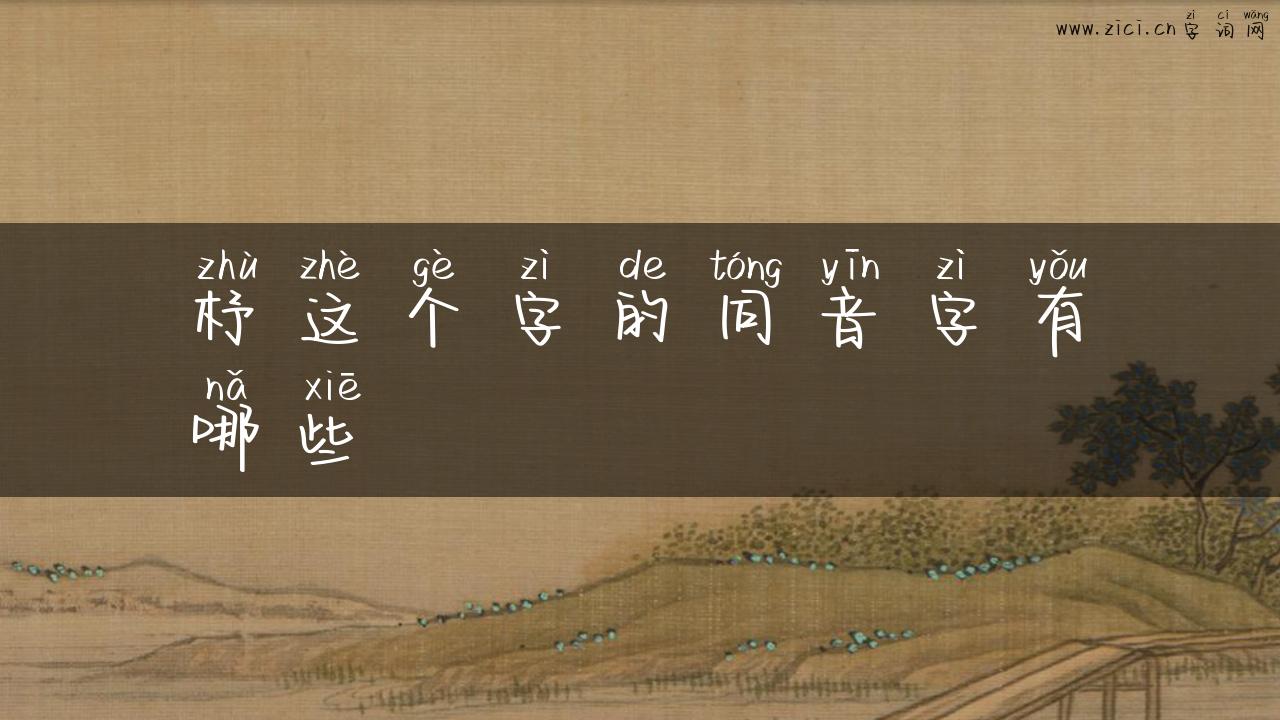 zì cí wǎng
www.zici.cn字词网
zhù zhè gè zì de tóng yīn zì yǒu
杼这个字的同音字有
nǎ xiē
哪些